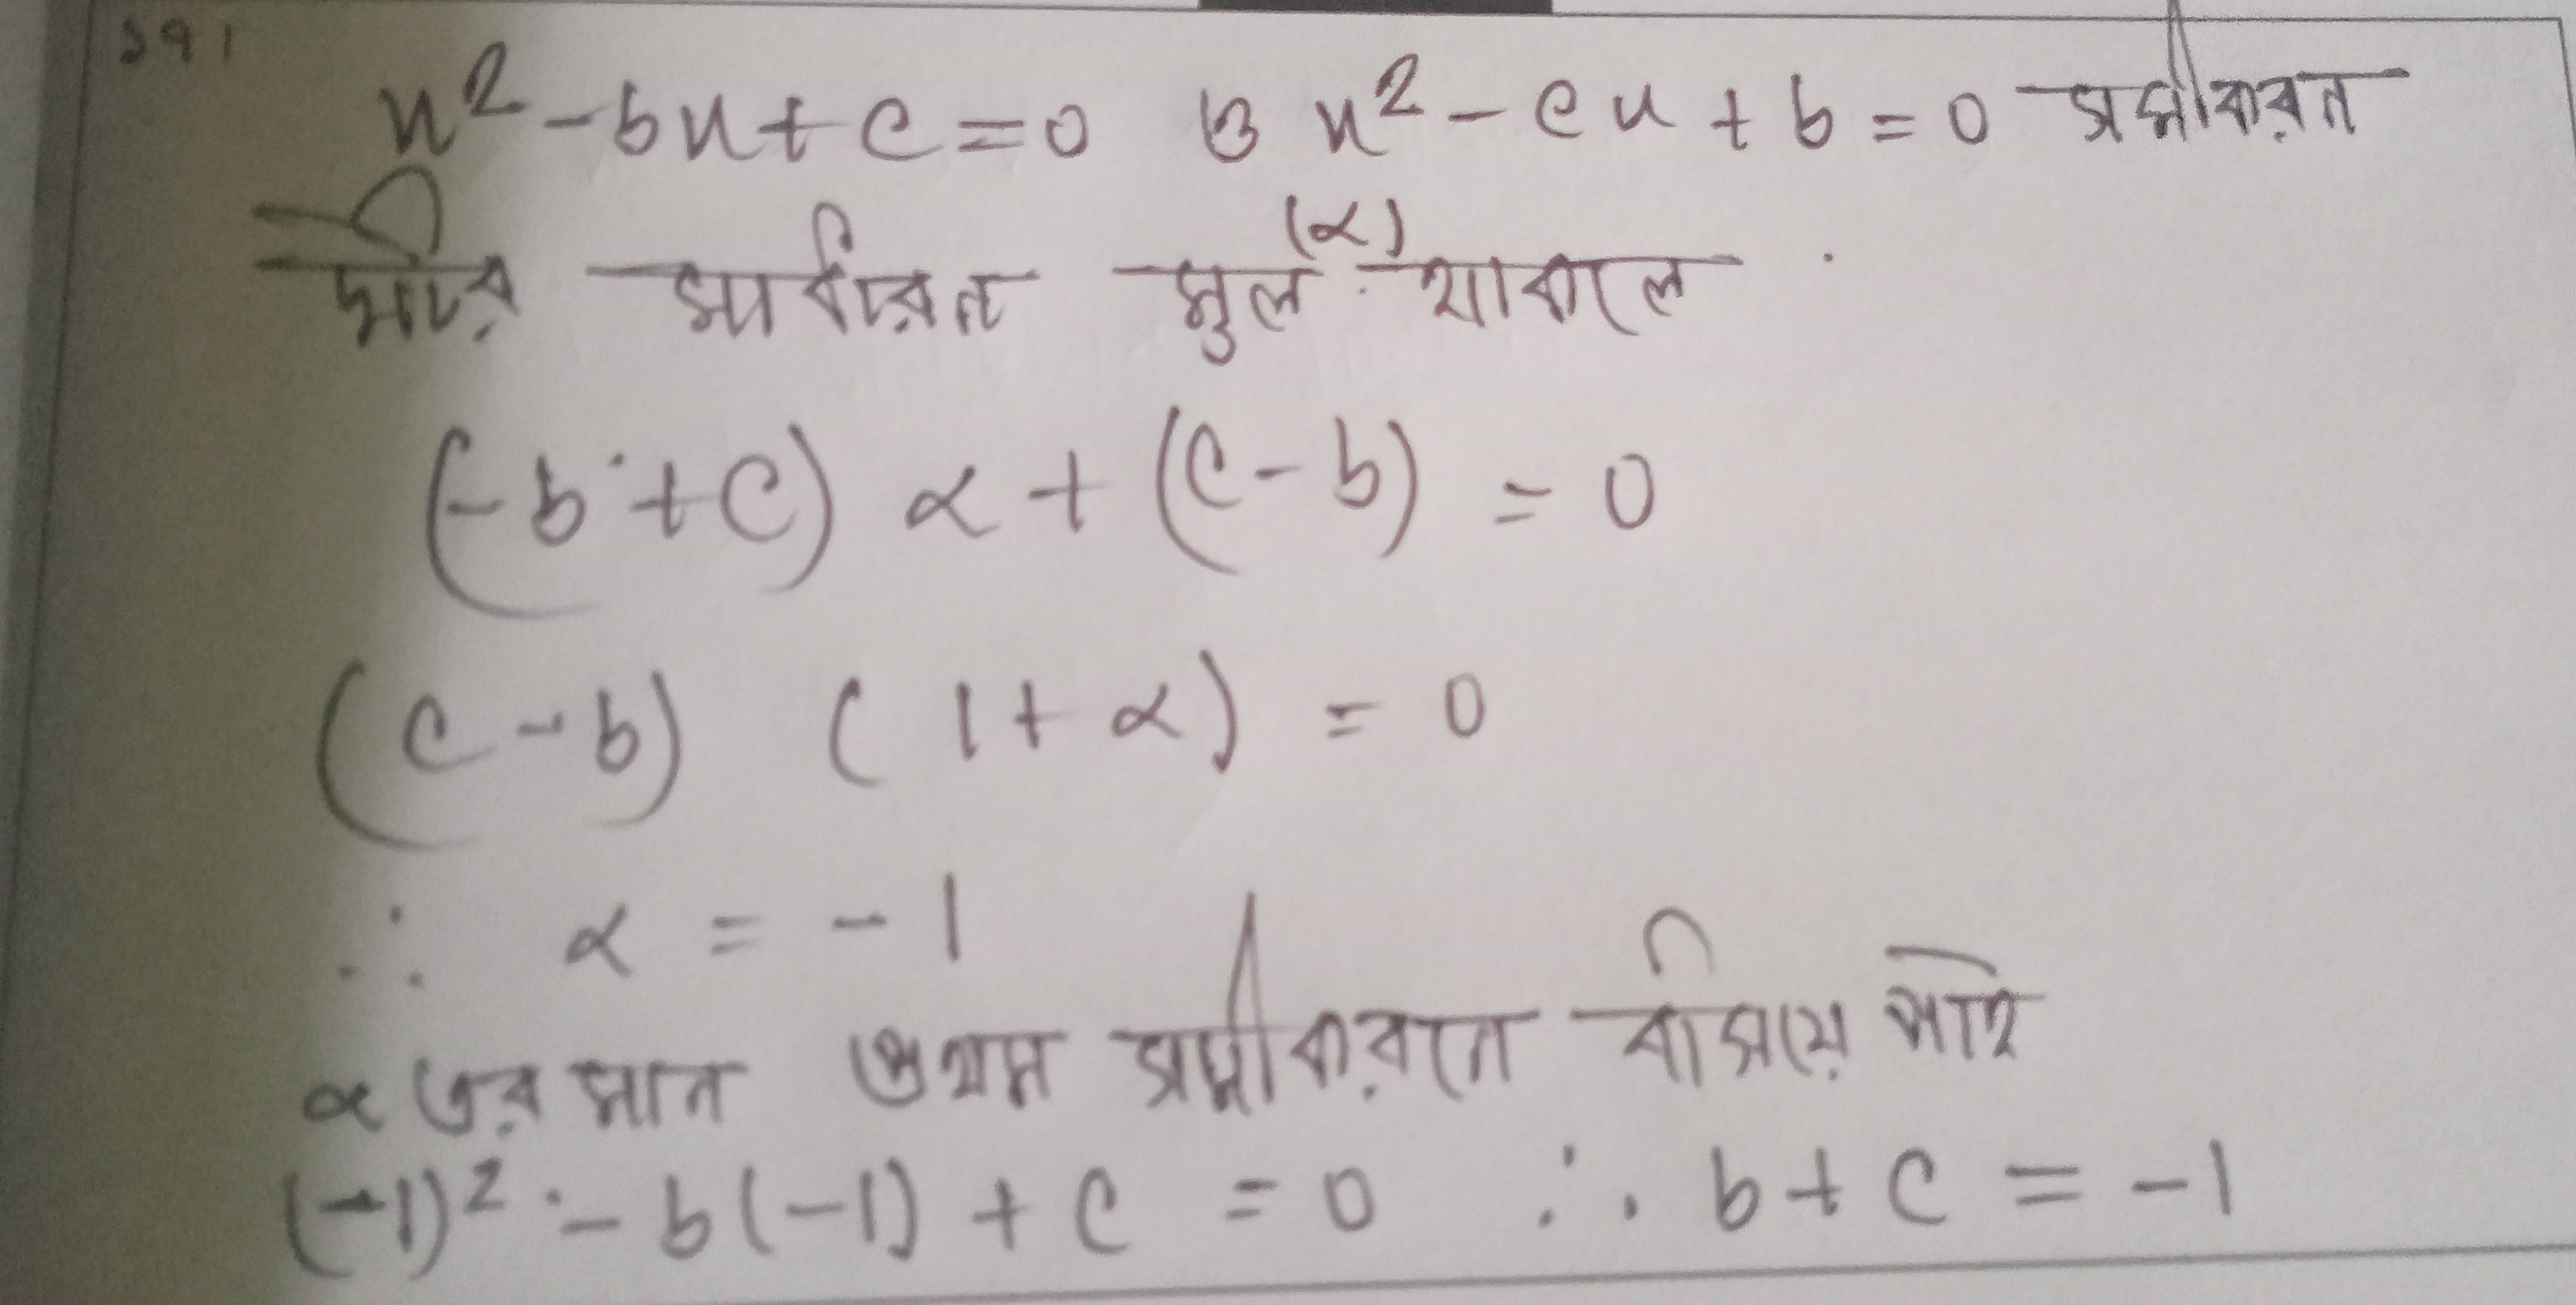 ১৭।
x² - bx + c = 0 ও x² - cx + b = 0 সমীকরন
(α)
সাধারন মুল থাকলে
(-b + c) α + (c - b) = 0
(c - b) (1 + α) = 0
∴ α = -1
α এর মান প্রথম সমীকরনে বসিয়ে পাই
(-1)² - b(-1) + c = 0 ∴ b + c = -1